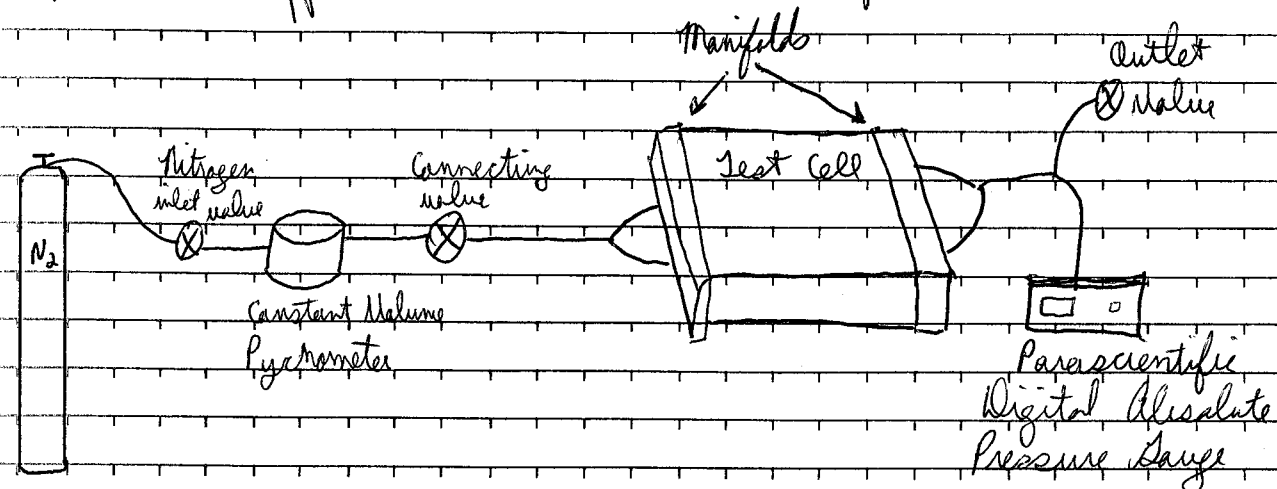 Manifolds
Outlet
Valve
Nitrogen
inlet valve
Connecting
valve
Test Cell
N2
Constant Volume
Pychometer
Parascientific
Digital Absolute
Pressure Gauge